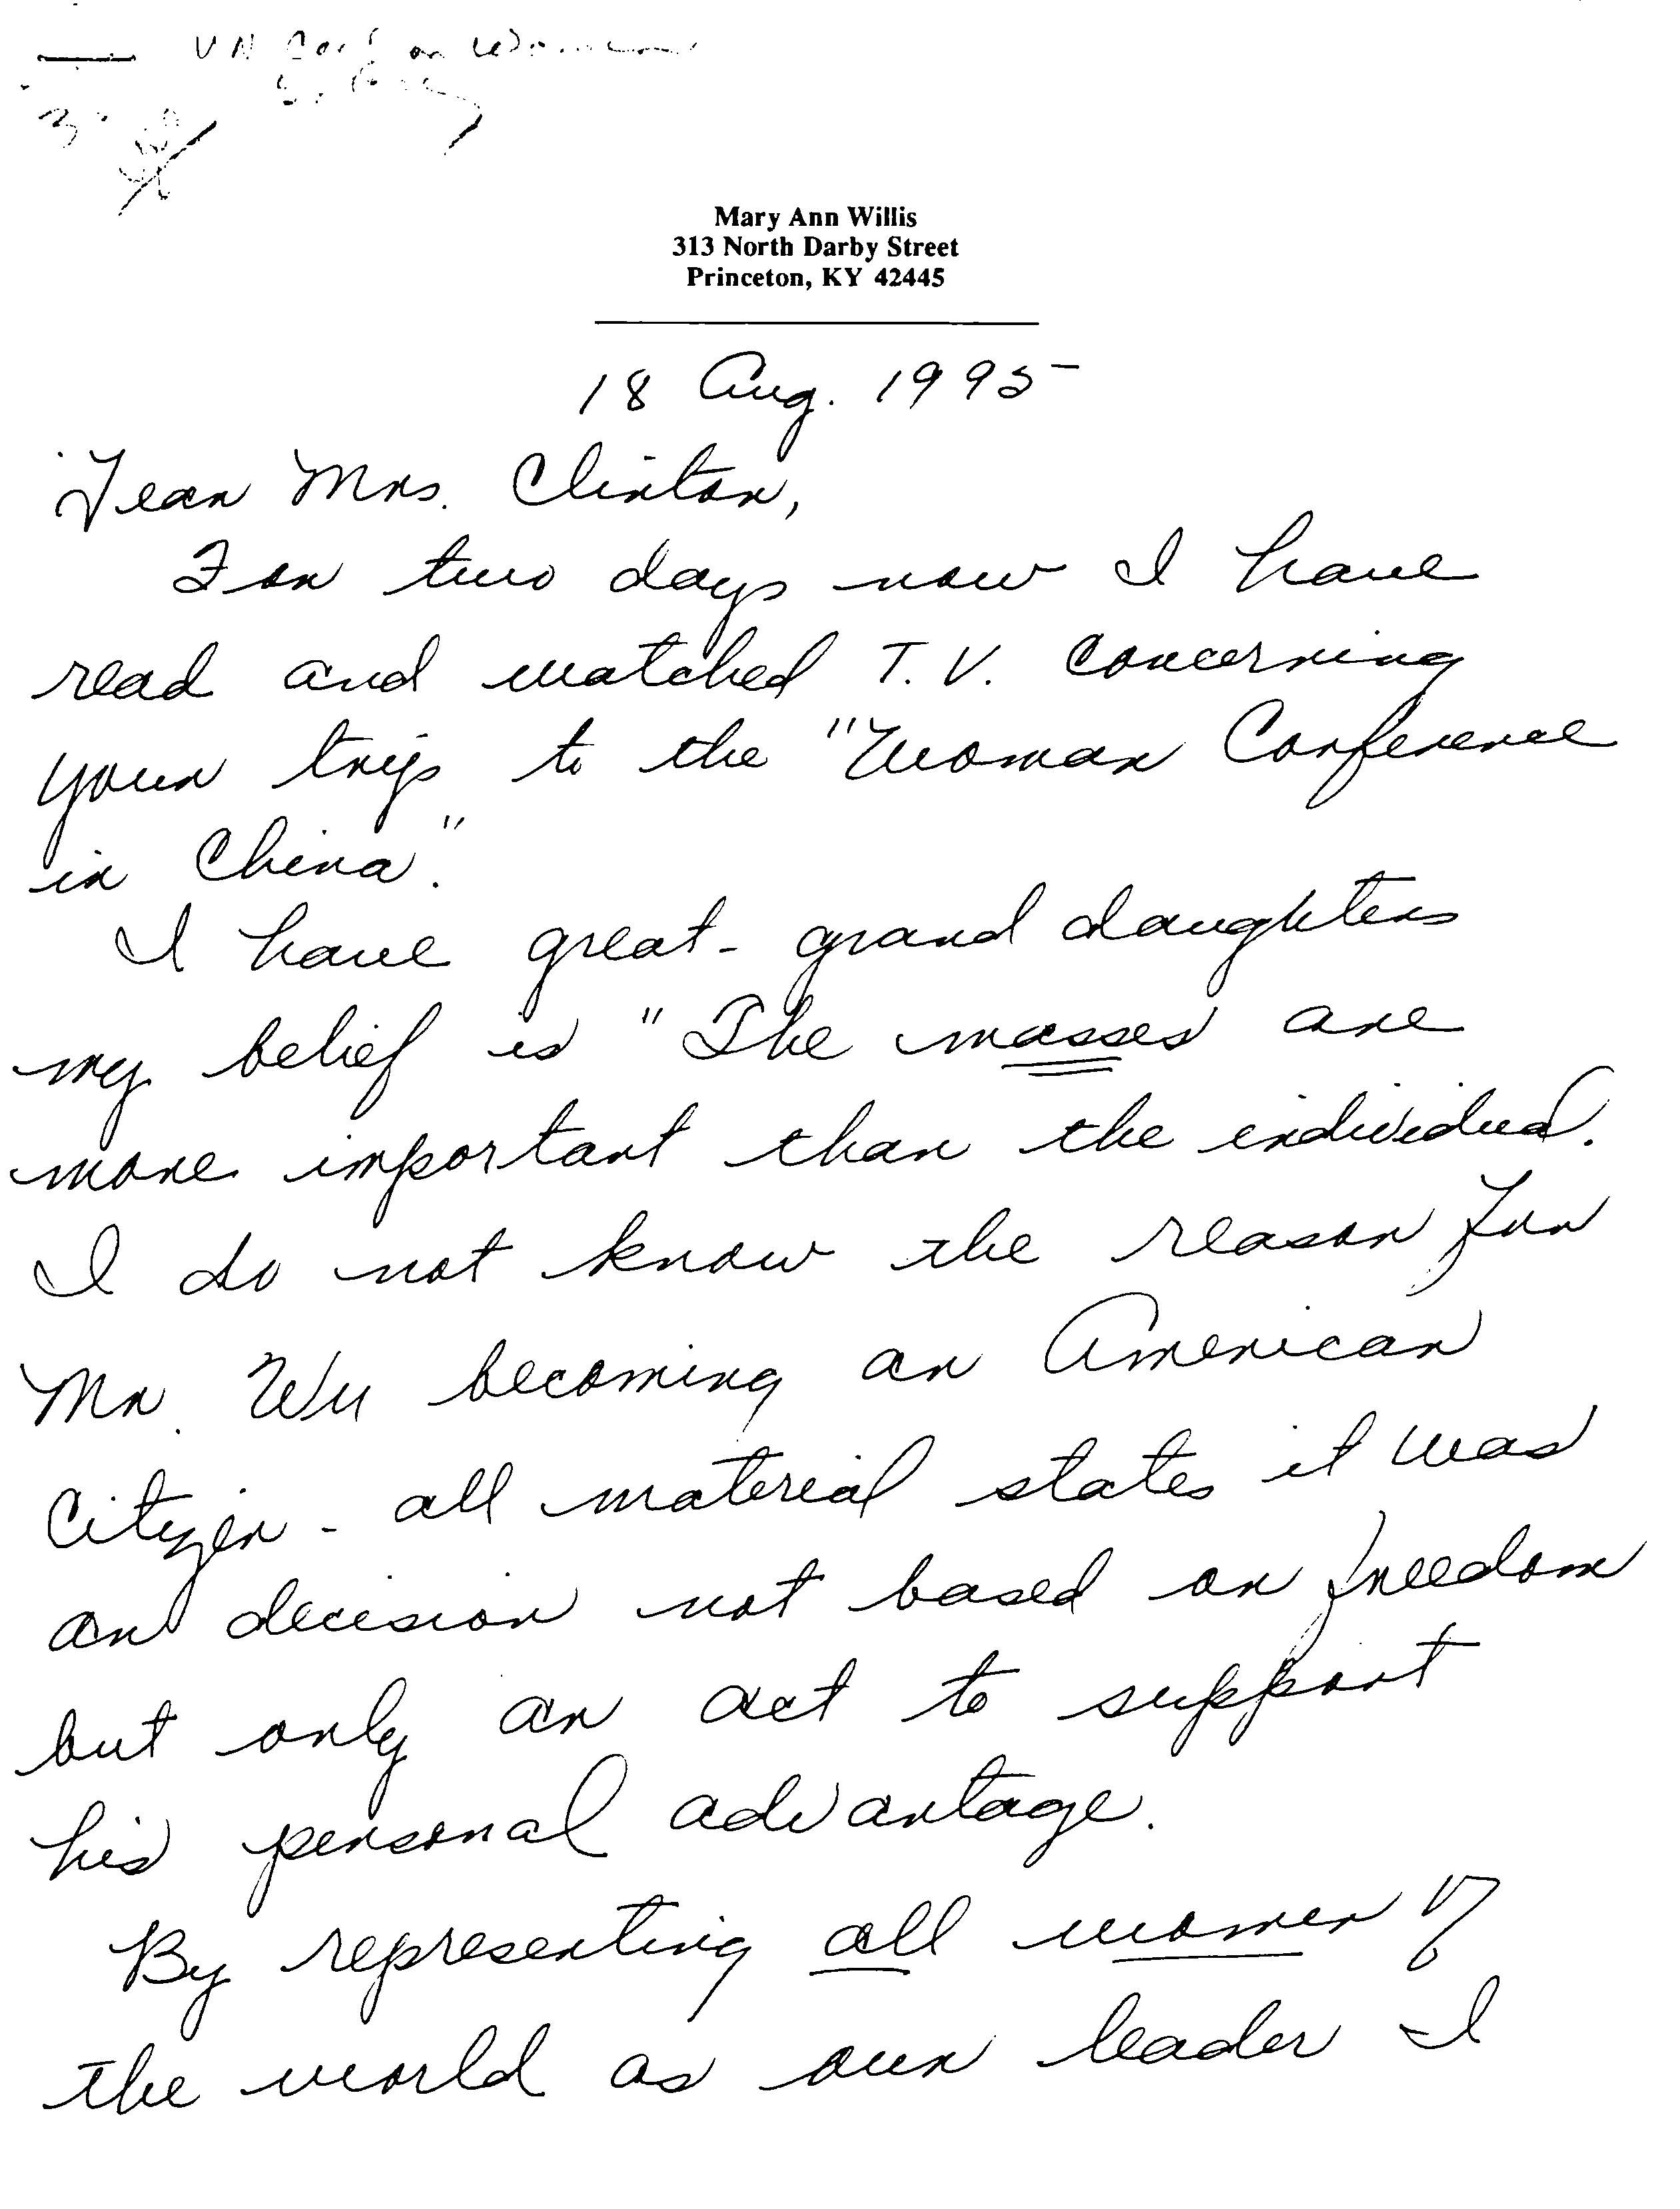 UN Conf on Women
Mary Ann Willis
313 North Darby Street
Princeton, KY 42445
18 Aug. 1995
Dear Mrs. Clinton,
For two days now I have
read and watched T.V. concerning
your trip to the "Woman Conference
in China".
I have great-grand daughters
my belief is "The masses are
more important than the individual.
I do not know the reason for
Mr. Wu becoming an American
Citizen - all material states it was
an decision not based on freedom
but only an act to support
his personal advantage.
By representing all women of
the world as our leader I